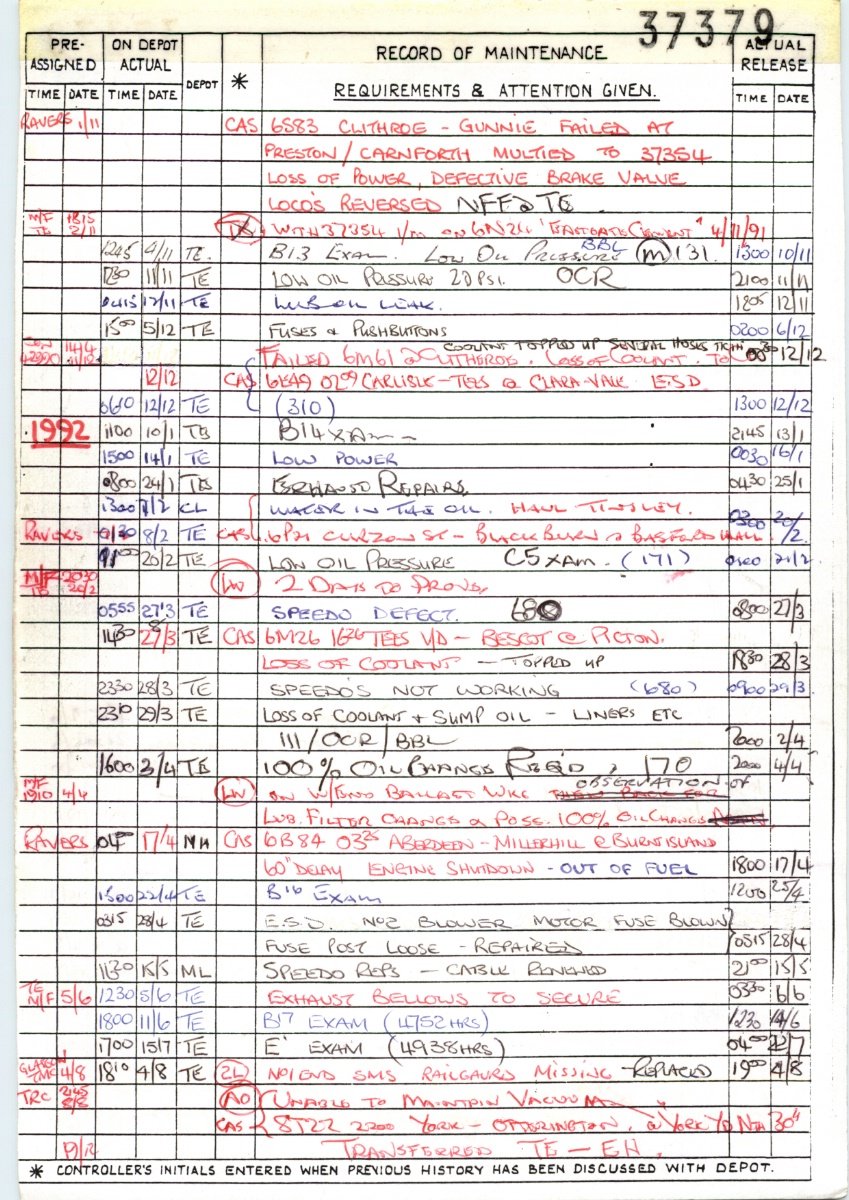 37379
PRE-ASSIGNED ON DEPOT ACTUAL DEPOT * RECORD OF MAINTENANCE REQUIREMENTS & ATTENTION GIVEN. ACTUAL RELEASE
TIME DATE TIME DATE TIME DATE
RAVERS 1/11 CAS 6S83 CLITHROE - GUNNIE FAILED AT
PRESTON / CARNFORTH MULTIED TO 37354
LOSS OF POWER, DEFECTIVE BRAKE VALVE
LOCO'S REVERSED NFF @ TE
M/F 1815 TE 2/11 WITH 37354 I/M ON 6N24 "EASTGATE CEMENT" 4/11/91
1245 9/11 TE. B13 EXAM. LOW OIL PRESSURE BBL (M) 131. 1300 10/11
11/11 TE LOW OIL PRESSURE 20 PSI. OCR 2100 11/11
0415 12/11 TE LUB OIL LEAK. 1805 12/11
1500 5/12 TE FUSES & PUSHBUTTONS 0200 6/12
COOLANT TOPPED UP SEVERAL HOSES TIGHT
FAILED 6M61 @ CLITHEROE. LOSS OF COOLANT. 0030 12/12
12/12 CAS 6E49 0209 CARLISLE - TEES @ CLARA-VALE E.S.D
0610 12/12 TE (310) 1300 12/12
1992 1100 10/1 TE B14 XAM 2145 13/1
1500 14/1 TE LOW POWER 0030 16/1
0800 24/1 TE EXHAUST REPAIRS 0430 25/1
1300 7/2 CL WATER IN THE OIL. HAUL TINSLEY. 0300 20/2
RAVERS 0130 8/2 TE CAS 6P21 CURZON ST - BLACKBURN @ BASFORD HALL
1100 20/2 TE LOW OIL PRESSURE C5 XAM. (171) 0100 21/2
M/F 2030 TE 20/2 LW 2 DAYS TO PROVE
0555 27/3 TE SPEEDO DEFECT. 680 0800 27/3
1430 28/3 TE CAS 6M26 1626 TEES Y/D - BESCOT @ PICTON.
LOSS OF COOLANT - TOPPED UP 1830 28/3
2330 28/3 TE SPEEDO'S NOT WORKING (680) 0900 29/3
2310 29/3 TE LOSS OF COOLANT + SUMP OIL - LINERS ETC
111 / OCR / BBL 2000 2/4
1600 3/4 TE 100% OIL CHANGE REQ'D, 170 2000 4/4
M/F 1910 4/4 LW ON W/END BALLAST WKG OBSERVATION of
LUB. FILTER CHANGE & POSS. 100% OIL CHANGE
RAVERS 0400 17/4 MH CAS 6B84 0325 ABERDEEN - MILLERHILL @ BURNTISLAND
60" DELAY ENGINE SHUTDOWN - OUT OF FUEL 1800 17/4
1500 22/4 TE B16 EXAM 1200 25/4
0315 28/4 TE E.S.D. NO2 BLOWER MOTOR FUSE BLOWN
FUSE POST LOOSE - REPAIRED 0515 28/4
1130 15/5 ML SPEEDO REPS - CABLE RENEWED 2100 15/5
TE M/F 5/6 1230 5/6 TE EXHAUST BELLOWS TO SECURE 0330 6/6
1800 11/6 TE B17 EXAM (4752 HRS) 1230 14/6
1700 15/7 TE E' EXAM (4938 HRS) 0400 22/7
4/8 1810 4/8 TE ZL NO1 END SMS RAILGAURD MISSING - REPLACED 1900 4/8
TRC 2145 AO UNABLE TO MAINTAIN VACUUM
CAS 8T22 2200 YORK - OTTERINGTON, @ YORK YD NTH 30"
TRANSFERRED TE - EH.
* CONTROLLER'S INITIALS ENTERED WHEN PREVIOUS HISTORY HAS BEEN DISCUSSED WITH DEPOT.